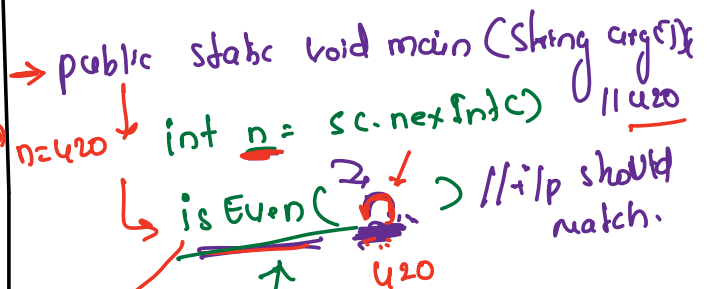 public static void main (String args[]){
//420
n=420
int n = sc.nextInt()
isEven( n ) //i/p should
match.
420